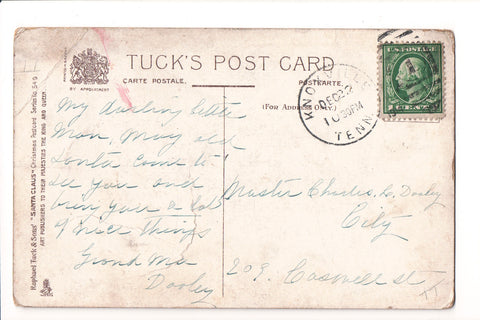 TUCK'S POST CARD
CARTE POSTALE.
POSTKARTE
BY APPOINTMENT
(For Address Only)
KNOXVILLE
DEC 22
10 30PM
TENN
U.S. POSTAGE
My darling little
Man, May old
Santa come to
see you and
bring you a lot
of nice things
Grand Ma
Dooley
Master Charles, L. Dooley
City
209. Caswell st
Raphael Tuck & Sons' "SANTA CLAUS" Christmas Postcard Series No. 549
ART PUBLISHERS TO THEIR MAJESTIES THE KING AND QUEEN